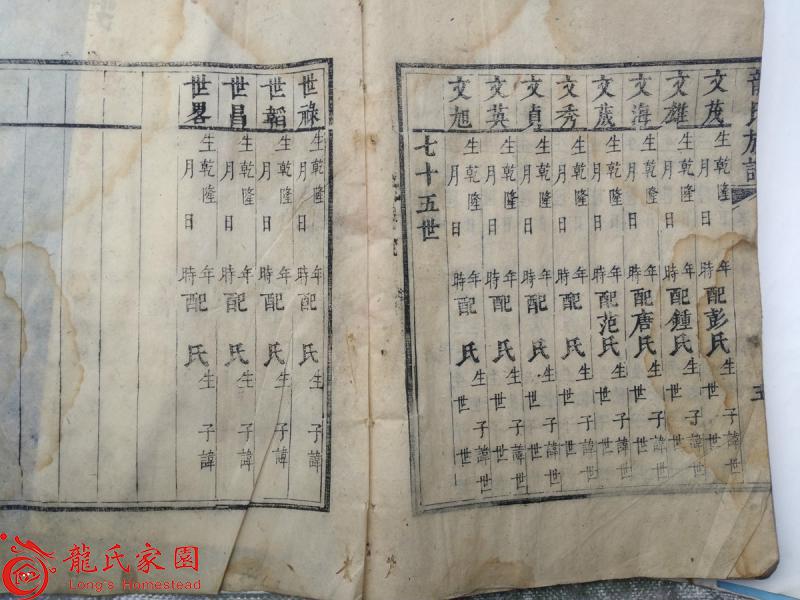 龍氏族譜
文茂 生乾隆 年 月 日 時 配彭氏 生 子諱世 世
文雄 生乾隆 年 月 日 時 配鍾氏 生 子諱世 世
文海 生乾隆 年 月 日 時 配唐氏 生 子諱世 世
文葳 生乾隆 年 月 日 時 配范氏 生 子諱世 世
文秀 生乾隆 年 月 日 時 配 氏 生 子諱世 世
文貞 生乾隆 年 月 日 時 配 氏 生 子諱世 世
文英 生乾隆 年 月 日 時 配 氏 生 子諱世 世
文旭 生乾隆 年 月 日 時 配 氏 生 子諱世 世
七十五世
世祿 生乾隆 年 月 日 時 配 氏 生 子諱
世韜 生乾隆 年 月 日 時 配 氏 生 子諱
世昌 生乾隆 年 月 日 時 配 氏 生 子諱
世畧 生乾隆 年 月 日 時 配 氏 生 子諱
龍氏家園
Long's Homestead